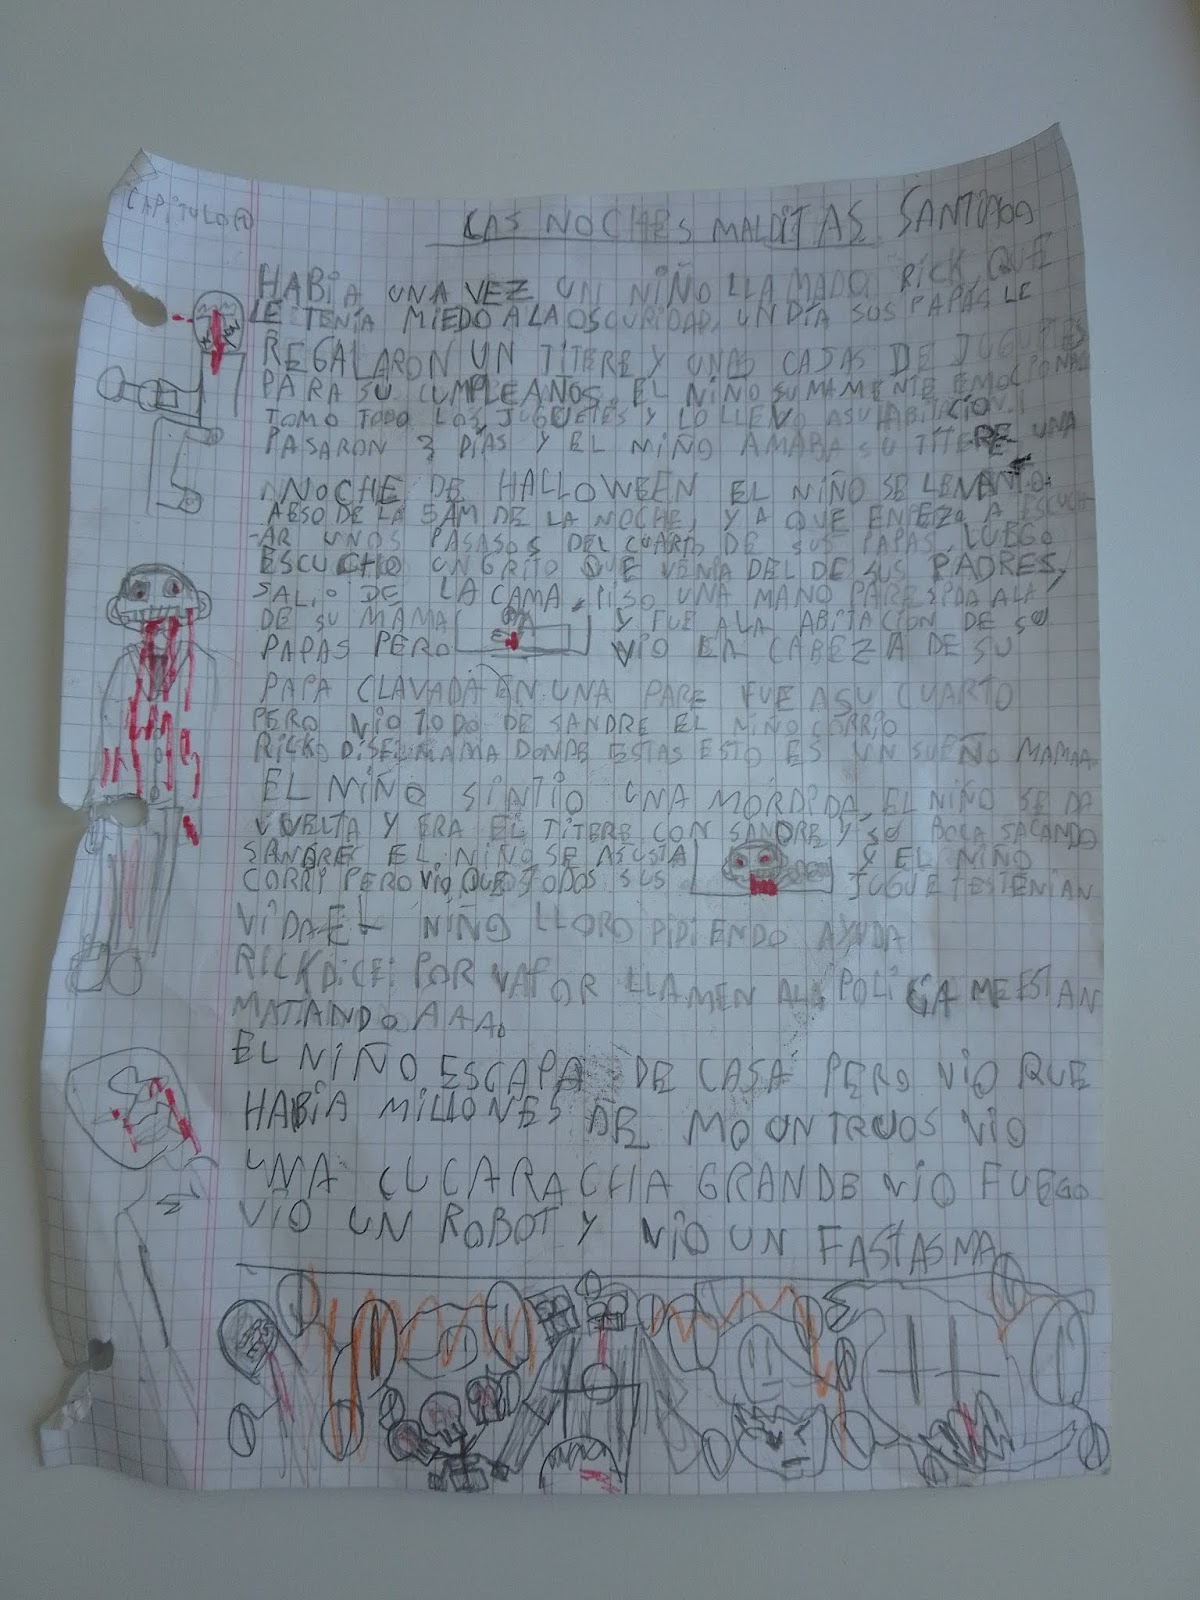 CAPITULO 1
LAS NOCHES MALDITAS SANTIAGO
HABIA UNA VEZ UN NIÑO LLAMADO RICK QUE
LE TENIA MIEDO A LA OSCURIDAD, UN DÍA SUS PAPAS LE
REGALARON UN TITERE Y UNAS CAJAS DE JUGUETES
PARA SU CUMPLEAÑOS. EL NIÑO SUMAMENTE EMOCIONADO
TOMO TODO LOS JUGUETES Y LO LLEVO ASU HABITACION.
PASARON 3 DÍAS Y EL NIÑO AMABA SU TITERE UNA
NNOCHE DE HALLOWEEN EL NIÑO SE LEVANTO
AESO DE LA 5AM DE LA NOCHE, YA QUE ENPEZO A ESCUCH
-AR UNOS PASASOS DEL CUARTO DE SUS PAPAS LUEGO
ESCUCHO UN GRITO QUE VENIA DEL DE SUS PADRES,
SALIO DE LA CAMA, PISO UNA MANO PARESIDA ALA
DE SU MAMA Y FUE ALA ABITACION DE SU
PAPAS PERO VIO LA CABEZA DE SU
PAPA CLAVADA EN UNA PARE FUE ASU CUARTO
PERO VIO TODO DE SANDRE EL NIÑO CORRIO
RICKO DISE: MAMA DONDE ESTAS ESTO ES UN SUEÑO MAMAA
EL NIÑO SINTIO UNA MORDIDA, EL NIÑO SE DA
VUELTA Y ERA EL TITERE CON SANDRE Y SU BOCA SACANDO
SANDRE EL NIÑO SE ASUSTA Y EL NIÑO
CORRI PERO VIO QUE TODOS SUS JUGUETES TENIAN
VIDA EL NIÑO LLORO PIDIENDO AYUDA
RICK DICE: POR VAFOR LLAMEN ALA POLICA ME ESTAN
MATANDO AAA.
EL NIÑO ESCAPA DE CASA PERO VIO QUE
HABIA MILLONES DE MOONTRUOS VIO
UNA CUCARACHA GRANDE VIO FUEGO
VIO UN ROBOT Y VIO UN FASTASMA